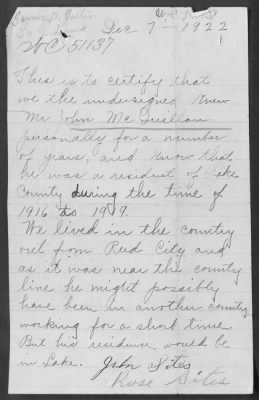 Dec 7 - 1922
WC 51137
This is to certify that
we the undersigned Knew
Mr John McQuillan
personally for a number
of years, and Know that
he was a resident of Lake
County during the time of
1916 to 1919.
We lived in the country
out from Reed City and
as it was near the county
line he might possibly
have been in another county
working for a short time
But his residence would be
in Lake.
John Sites
Rose Sites